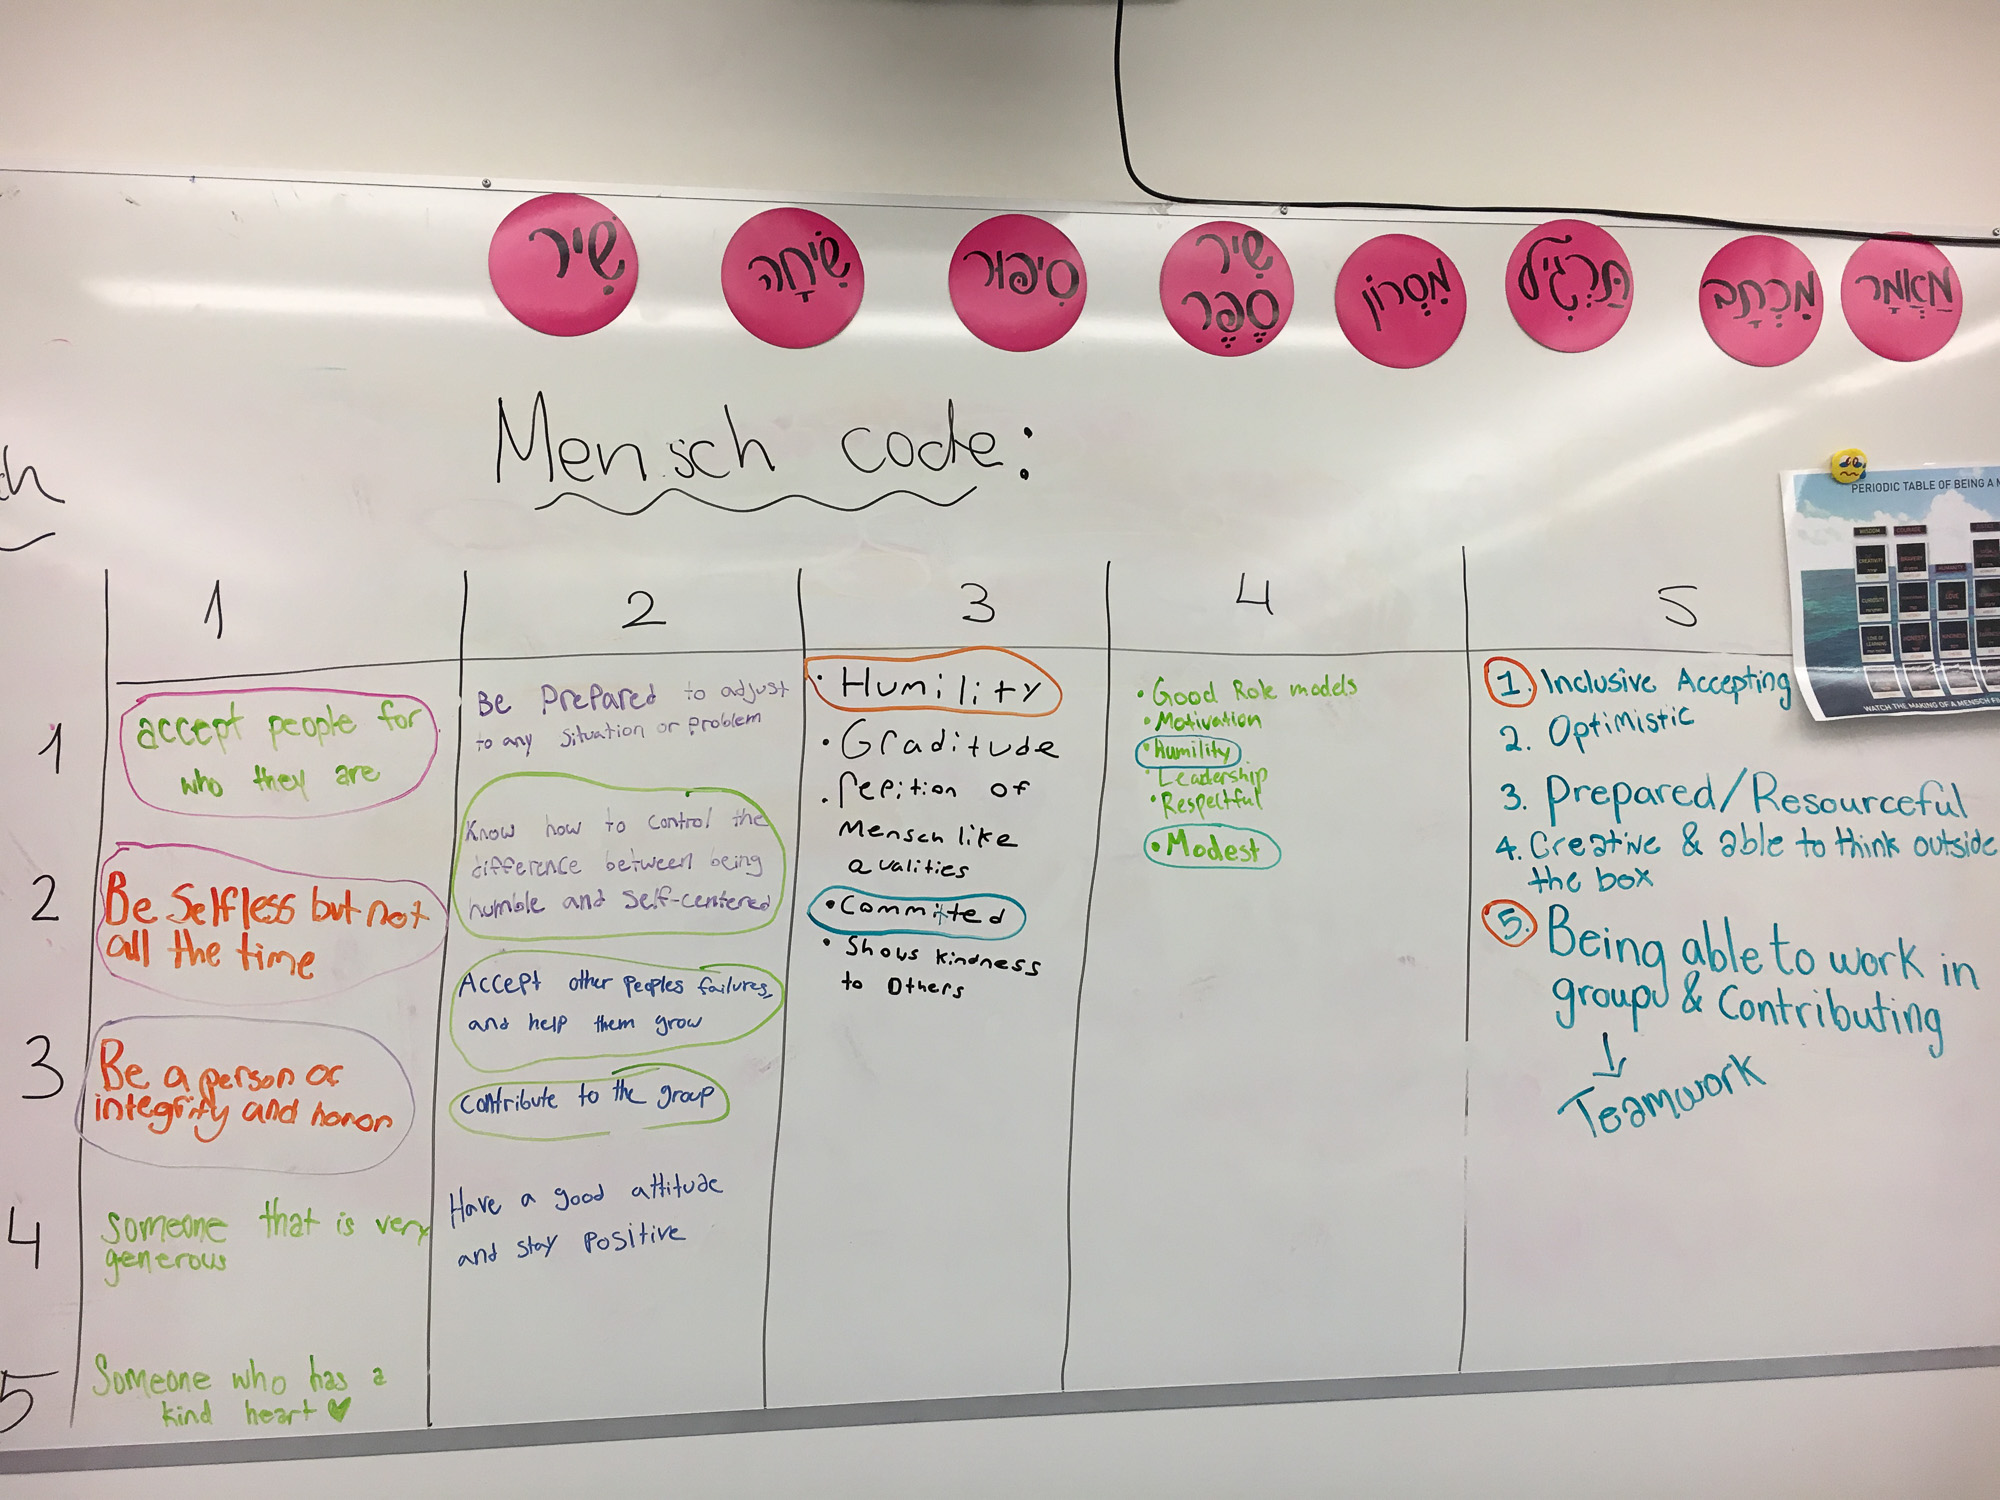 שִׁיר
שִׂיחָה
סִיפּוּר
שִׁיר
סֶפֶר
מִסְרוֹן
תַּרְגִּיל
מִכְתָּב
מַאֲמָר
Mensch code:
ch
PERIODIC TABLE OF BEING A M
WISDOM
COURAGE
CREATIVITY
BRAVERY
HUMANITY
CURIOSITY
LOVE
LOVE OF
LEARNING
HONESTY
KINDNESS
WATCH THE MAKING OF A MENSCH FI
1
2
3
4
5
1
accept people for
who they are
2
Be Selfless but not
all the time
3
Be a person of
integrity and honor
4
Someone that is very
generous
5
Someone who has a
kind heart ♥
Be Prepared to adjust
to any situation or problem
Know how to control the
difference between being
humble and Self-centered
Accept other peoples failures,
and help them grow
Contribute to the group
Have a good attitude
and stay positive
• Humility
• Graditude
• repition of
Mensch like
qualities
• Committed
• Shows kindness
to Others
• Good Role models
• Motivation
• Humility
• Leadership
• Respectful
• Modest
1. Inclusive Accepting
2. Optimistic
3. Prepared/Resourceful
4. Creative & able to think outside
the box
5. Being able to work in
groups & Contributing
↓
Teamwork